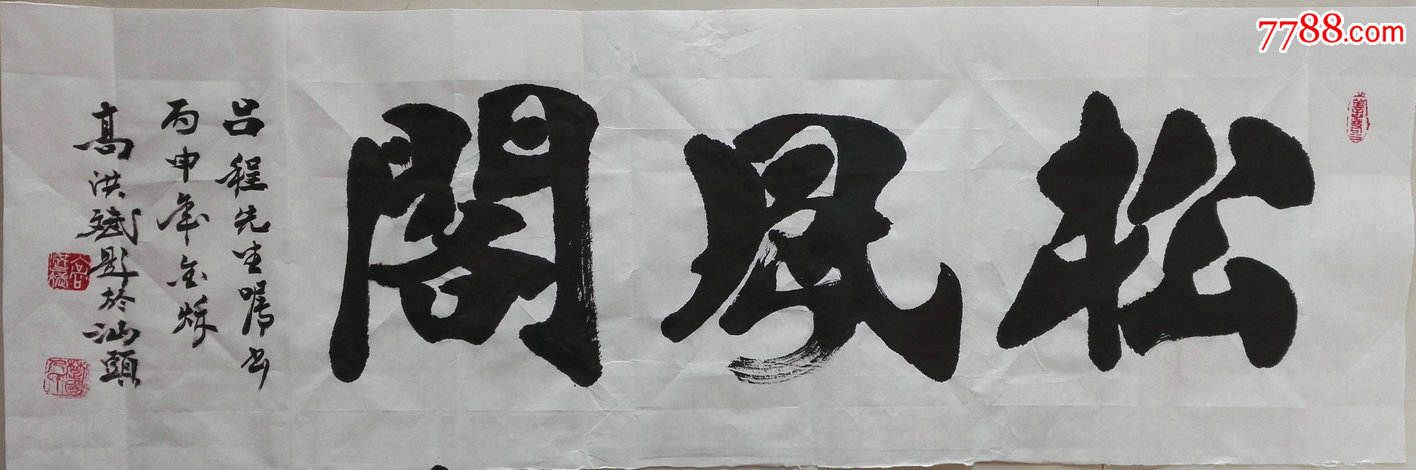 松風閣
吕程先生嘱书
丙申年金秋
高洪斌题於汕頭
7788.com